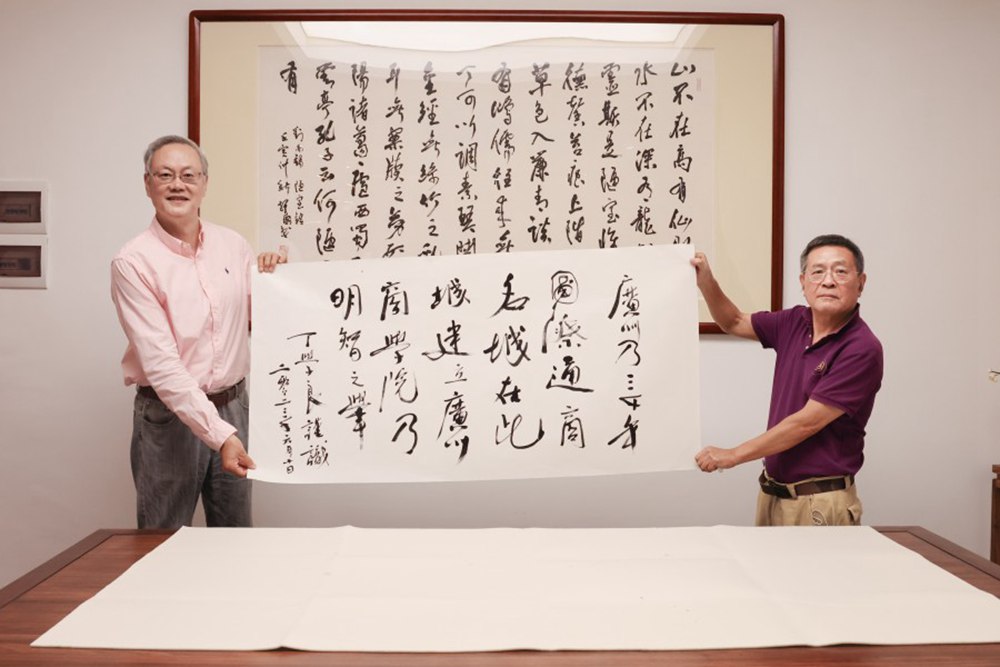 山不在高有仙
水不在深有龍
靈斯是陋室惟
德馨苔痕上階
草色入簾青談
有鴻儒往來無
丁可以調素琴閱
金經無絲竹之亂
耳無案牘之勞形
陽諸葛廬西蜀
雲亭孔子云何陋
有
劉禹錫 陋室銘
廣州乃三千年
國際通商
名城在此
城建立廣州
商學院乃
明智之舉
丁學良謹識
二零二三年六月十日